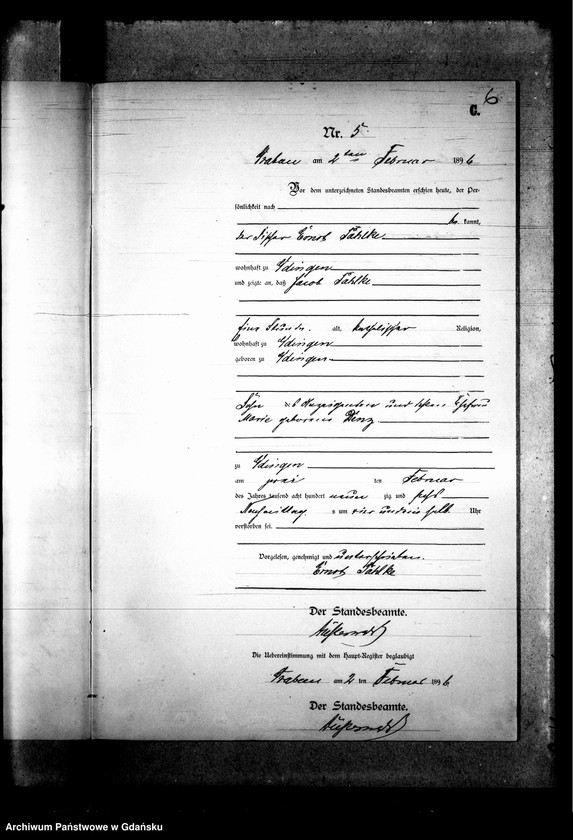 6
C.
Nr. 5
Straban am 2ten Februar 1896
Vor dem unterzeichneten Standesbeamten erschien heute, der Per-
sönlichkeit nach
be kannt,
der Fischer Ernst Tahlke
wohnhaft zu Gdingen
und zeigte an, daß Jacob Tahlke
eine Stunde alt, katholischer Religion,
wohnhaft zu Gdingen
geboren zu Gdingen
Sohn des Anzeigenden und dessen Ehefrau
Marie geborene
zu Gdingen
am zwei ten Februar
des Jahres tausend acht hundert neun zig und sechs
Nachmittags um vier und ein halb Uhr
verstorben sei.
Vorgelesen, genehmigt und unterschrieben.
Ernst Tahlke
Der Standesbeamte.
Die Uebereinstimmung mit dem Haupt-Register beglaubigt
am 2 ten Februar 1896
Der Standesbeamte.
Archiwum Państwowe w Gdańsku